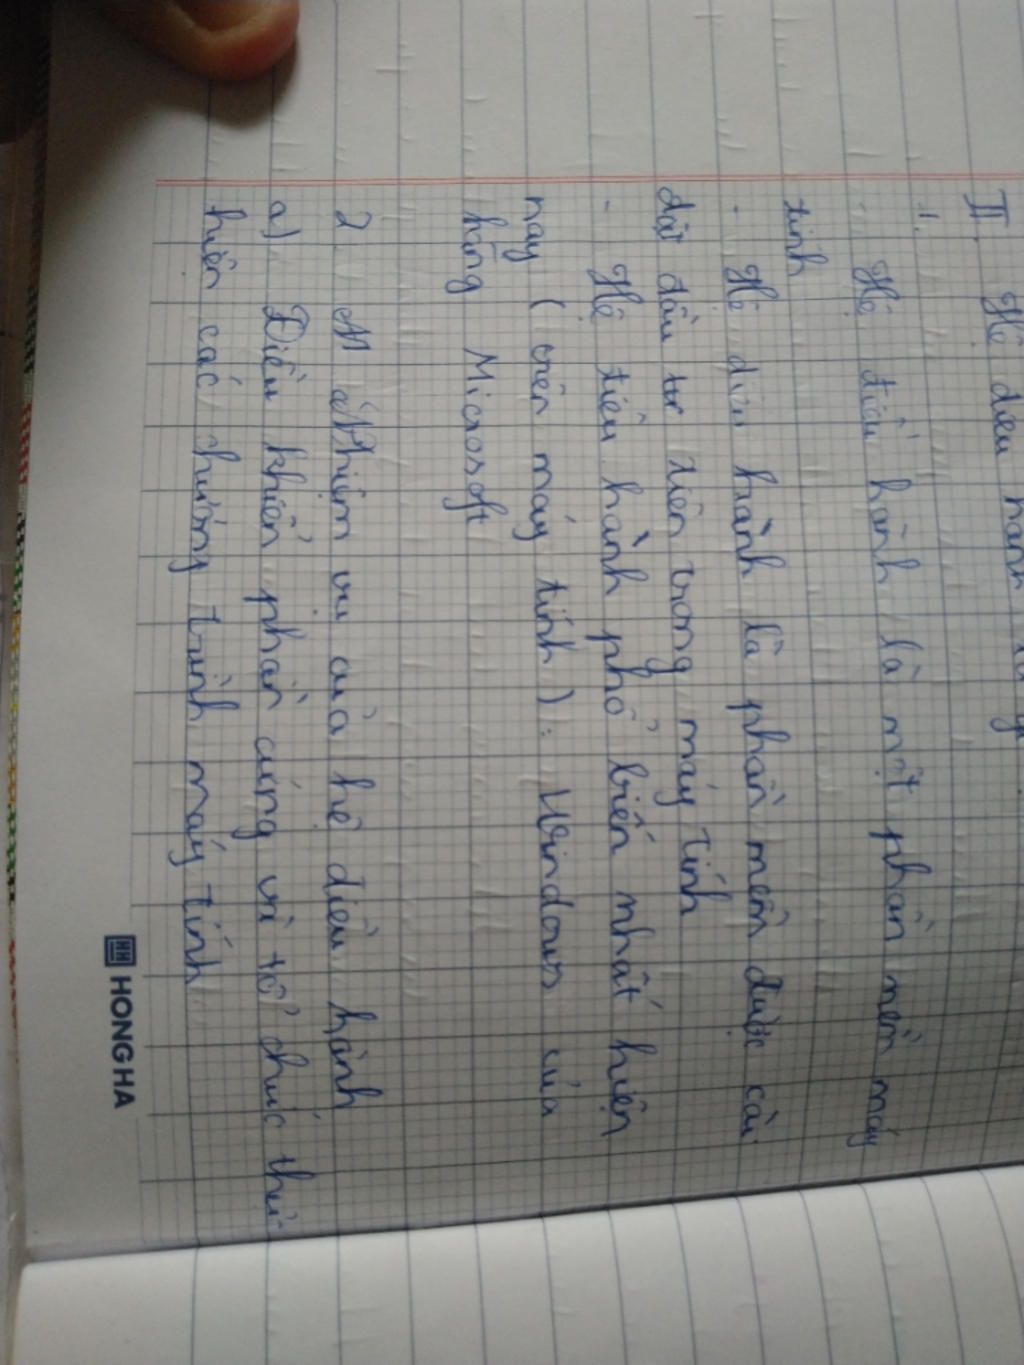 II. Hệ điều hành là gì
1.
- Hệ điều hành là một phần mềm máy
tinh
- Hệ điều hành là phần mềm được cài
đặt đầu tư diên trong máy tính
- Hệ tiêu hành phổ biến nhất hiện
nay ( trên máy tính ): Windows của
hãng Microsoft
2. Nhiệm vụ của hệ điều hành
a) Điều khiển phần cứng và tổ chức thực
hiện các chương trình máy tính
HONG HA